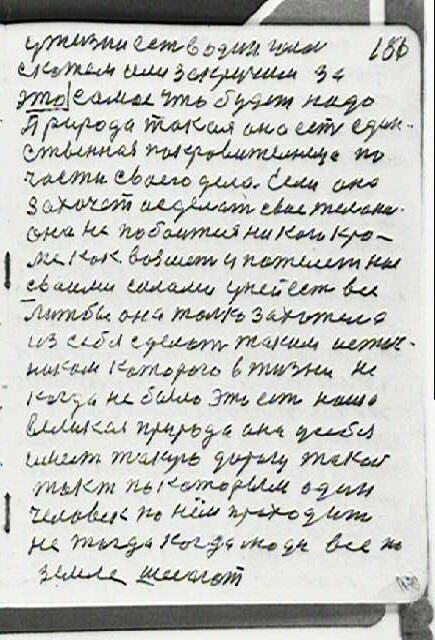 у жизни есть один
скажем или закричим за
это самое что будет надо
Природа такая она есть един-
ственная покровительница по
части своего дела. Если она
захочет сделать свое
она не побоится никого кро-
ме как возмет и пошлет
своими силами у ней есть все
Литбы она только захотела
из себя сделать таким источ-
ником которого в жизни не
когда не было это есть наша
великая природа она у себя
имеет такую дорогу такой
такт по которым один
человек по нём проходит
не тогда когда люди все по
земле шагают